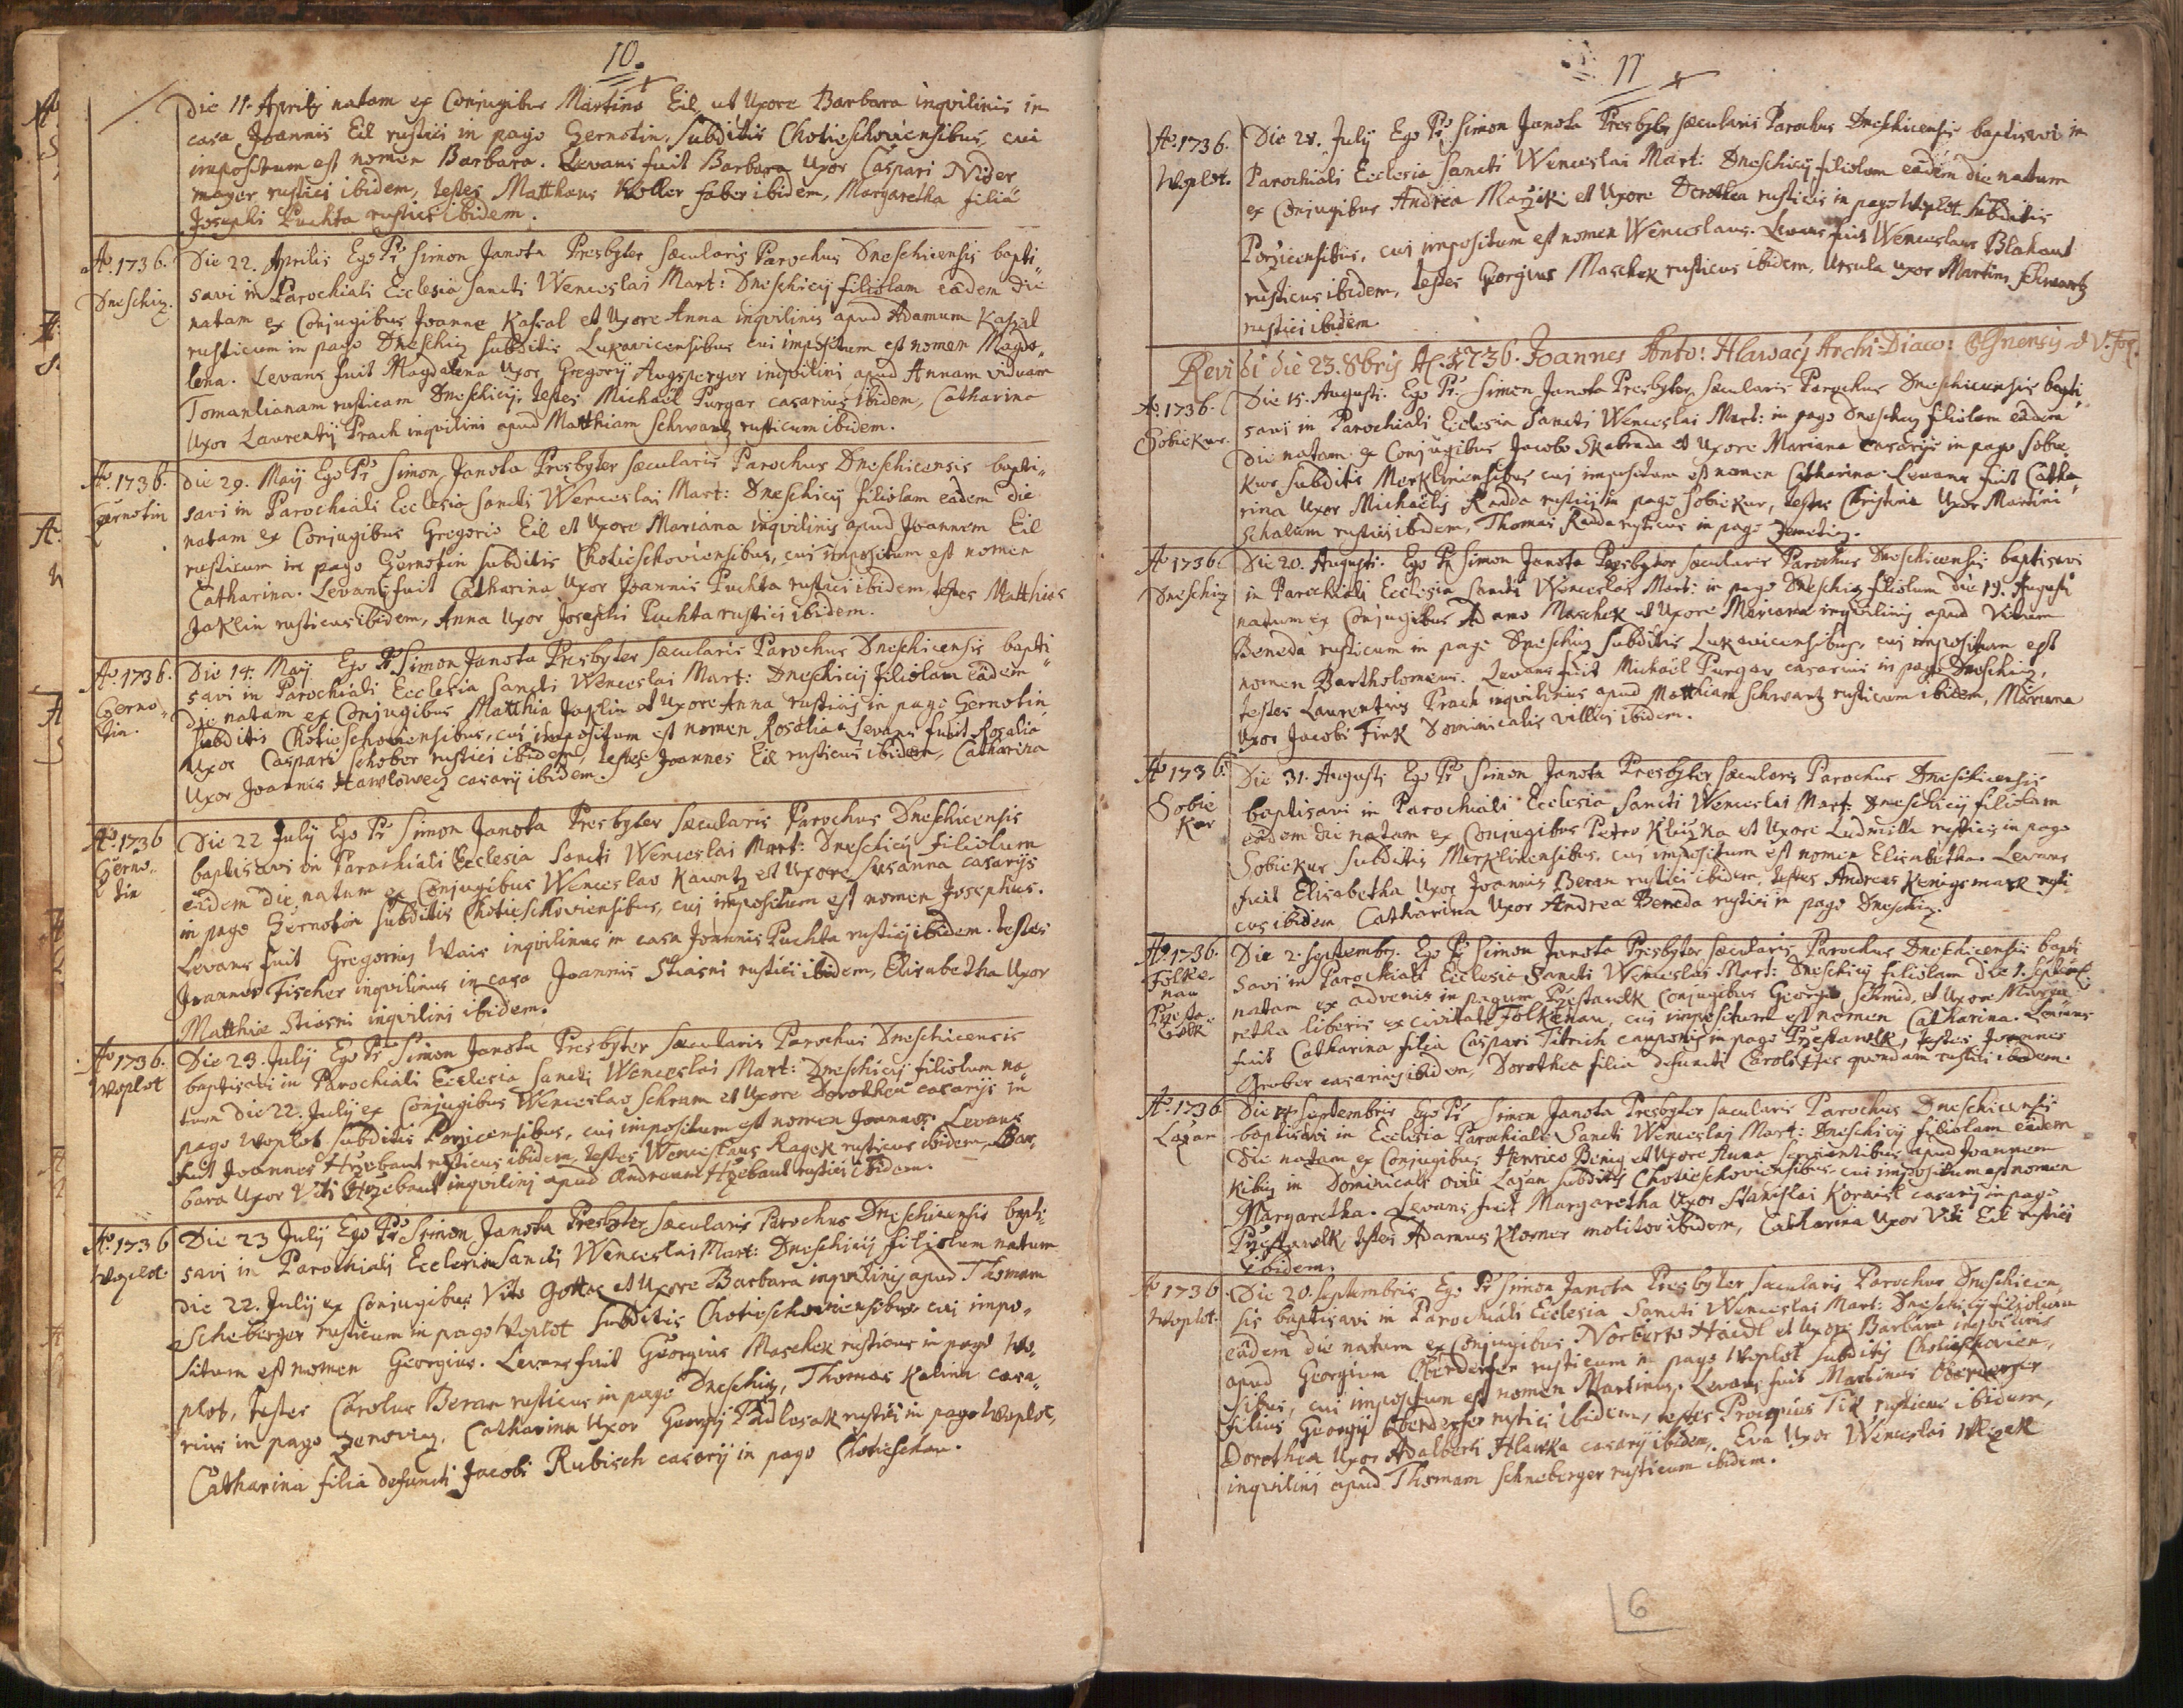 10.
Die 11. Aprilis natam ex Conjugibus Martino Eil et Uxore Barbara inqvilinis in
casa Joannis Eil rustici in pago Gernotin, subditis Chotieschoviensibus, cui
impositum est nomen Barbara. Levans fuit Barbara Uxor Caspari Nider
mayer rustici ibidem, testes Matthæus Koller faber ibidem, Margaretha filia
Josephi Puchta rustici ibidem.
Ao. 1736. Die 22. Aprilis Ego Pr Simon Janota Presbyter sæcularis Parochus Dneschicensis bapti„
Dneschiz. savi in Parochiali Ecclesia Sancti Wenceslai Mart: Dneschicij filiolam eâdem die
natam ex Conjugibus Joanne Kassal et Uxore Anna inqvilinis apud Adamum Kassal
rusticum in pago Dneschiz subditis Lukavicensibus cui impositum est nomen Magda„
lena. Levans fuit Magdalena Uxor Gregorij Augsperger inqvilini apud Annam viduam
Tomantianam rusticam Dneschicij, testes Michaël Purgar casarius ibidem, Catharina
Uxor Laurentij Prach inqvilini apud Matthiam Schwartz rusticum ibidem.
Ao. 1736. Die 29. Maij Ego Pr Simon Janota Presbyter sæcularis Parochus Dneschicensis bapti„
Gernotin savi in Parochiali Ecclesia Sancti Wenceslai Mart: Dneschicij filiolam eâdem die
natam ex Conjugibus Gregorio Eil et Uxore Mariana inqvilinis apud Joannem Eil
rusticum in pago Gernotin subditis Chotieschoviensibus, cui impositum est nomen
Catharina. Levans fuit Catharina Uxor Joannis Puchta rustici ibidem, testes Matthias
Jaklin rusticus ibidem, Anna Uxor Josephi Puchta rustici ibidem.
Ao 1736. Die 14. Maij Ego Pr Simon Janota Presbyter sæcularis Parochus Dneschicensis bapti
Gerno„ savi in Parochiali Ecclesia Sancti Wenceslai Mart: Dneschicij filiolam eâdem
tin. die natam ex Conjugibus Matthia Jaklin et Uxore Anna rusticis in pago Gernotin
subditis Chotieschoviensibus, cui impositum est nomen Rosalia. Levans fuit Rosalia
Uxor Caspari Schober rustici ibidem, testes Joannes Eil rusticus ibidem, Catharina
Uxor Joannis Hawlowetz casarij ibidem.
Ao. 1736 Die 22 July Ego Pr Simon Janota Presbyter sæcularis Parochus Dneschicensis
Gerno„ baptisavi in Parochiali Ecclesia Sancti Wenceslai Mart: Dneschicij filiolum
tin eâdem die natum ex Conjugibus Wenceslao Kauntz et Uxore Susanna casarijs
in pago Gernotin subditis Chotieschoviensibus, cui impositum est nomen Josephus.
Levans fuit Gregorius Wais inqvilinus in casa Joannis Puchta rustici ibidem. testes
Joannes Fischer inqvilinus in casa Joannis Stiasni rustici ibidem, Elisabetha Uxor
Matthiæ Stiasni inqvilini ibidem.
Ao 1736. Die 23. July Ego Pr Simon Janota Presbyter sæcularis Parochus Dneschicensis
Woplot baptisavi in Parochiali Ecclesia Sancti Wenceslai Mart: Dneschicij filiolum na
tum die 22. July ex Conjugibus Wenceslao Schram et Uxore Dorothea casarijs in
pago Woplot subditis Porzicensibus, cui impositum est nomen Joannes. Levans
fuit Joannes Hrzebant rusticus ibidem, testes Wenceslaus Ragek rusticus ibidem, Bar„
bara Uxor Viti Hrzebant inqvilini apud Andream Hrzebant rustici ibidem.
Ao. 1736 Die 23 July Ego Pr Simon Janota Presbyter sæcularis Parochus Dneschicensis bapti„
Woplot. savi in Parochiali Ecclesia Sancti Wenceslai Mart: Dneschicij filiolum natum
die 22. July ex Conjugibus Vito Gottas et Uxore Barbara inqvilinis apud Thomam
Scheberger rusticum in pago Woplot subditis Chotieschoviensibus cui impo„
situm est nomen Georgius. Levans fuit Georgius Maschek rusticus in pago Wo„
plot, testes Carolus Beran rusticus in pago Dneschiz, Thomas Kalina casa„
rius in pago Zeroviz, Catharina Uxor Georgij Padlesak rustici in pago Woplot,
Catharina filia defuncti Jacobi Rubisch casarij in pago Chotieschau.
11
Ao. 1736. Die 28. July Ego Pr Simon Janota Presbyter sæcularis Parochus Dneschicensis baptisavi in
Woplot. Parochiali Ecclesia Sancti Wenceslai Mart: Dneschicij filiolum eâdem die natum
ex Conjugibus Andrea Marzik et Uxore Dorothea rusticis in pago Woplot subditis
Porzicensibus, cui impositum est nomen Wenceslaus. Levans fuit Wenceslaus Blahaut
rusticus ibidem, testes Georgius Maschek rusticus ibidem, Ursula Uxor Martini Schwartz
rustici ibidem.
Revidi die 23. 8bris Ao 1736. Joannes Anto: Hlawacz Archi-Diaco:
Ao. 1736. Die 15. Augusti. Ego Pr. Simon Janota Presbyter sæcularis Parochus Dneschicensis bapti„
Sobiekur savi in Parochiali Ecclesia Sancti Wenceslai Mart: in pago Dneschiz filiolam eâdem
die natam ex Conjugibus Jacobo Skabrada et Uxore Mariana casarijs in pago Sobie„
kur subditis Merklinensibus cui impositum est nomen Catharina. Levans fuit Catha„
rina Uxor Michaëlis Radda rustici in pago Sobiekur, testes Christina Uxor Martini
Schalam rustici ibidem, Thomas Radda rusticus in pago Zemetiz.
Ao 1736. Die 20. Augusti. Ego Pr Simon Janota Presbyter sæcularis Parochus Dneschicensis baptisavi
Dneschiz in Parochiali Ecclesia Sancti Wenceslai Mart: in pago Dneschiz filiolum die 19. Augusti
natum ex Conjugibus Adamo Maschek et Uxore Mariana inqvilinis apud Vitum
Beneda rusticum in pago Dneschiz subditis Lukavicensibus, cui impositum est
nomen Bartholomæus. Levans fuit Michaël Purgar casarius in pago Dneschiz,
testes Laurentius Prach inqvilinus apud Matthiam Schwartz rusticum ibidem, Mariana
Uxor Jacobi Fink Dominicalis villici ibidem.
Ao 1736. Die 31. Augusti Ego Pr Simon Janota Presbyter sæcularis Parochus Dneschicensis
Sobie baptisavi in Parochiali Ecclesia Sancti Wenceslai Mart. Dneschicij filiolam
kur eâdem die natam ex Conjugibus Petro Kliczka et Uxore Ludmilla rusticis in pago
Sobiekur subditis Merklinensibus, cui impositum est nomen Elisabetha. Levans
fuit Elisabetha Uxor Joannis Beran rustici ibidem, testes Andreas Kenigsmark rusti
cus ibidem Catharina Uxor Andreæ Beneda rustici in pago Dneschiz.
Ao. 1736. Die 2. Septembris. Ego Pr Simon Janota Presbyter sæcularis Parochus Dneschicensis bapti
Folke- savi in Parochiali Ecclesia Sancti Wenceslai Mart: Dneschicij filiolam die 1. Septemb.
nau natam ex advenis in pagum Przestawlk Conjugibus Georgio Schmid, et Uxore Marga
Przesta„ retha liberis ex civitate Folkenau, cui impositum est nomen Catharina. Levans
wlk fuit Catharina filia Caspari Titrich cauponis in pago Przestawlk, testes Joannes
Gruber casarius ibidem, Dorothea filia defuncti Caroli quondam rustici ibidem.
Ao. 1736 Die Septembris Ego Pr Simon Janota Presbyter sæcularis Parochus Dneschicensis
Lazan baptisavi in Ecclesia Parochiali Sancti Wenceslai Mart: Dneschicij filiolam eâdem
die natam ex Conjugibus Henrico Benig et Uxore Anna servientibus apud Joannem
Kibiz in Dominicali ovili Lazan subditis Chotieschoviensibus, cui impositum est nomen
Margaretha. Levans fuit Margaretha Uxor Stanislai Kornisl casarij in pago
Przestawlk, testes Adamus Klorner molitor ibidem, Catharina Uxor Viti Eil rustici
ibidem.
Ao 1736 Die 20. Septembris Ego Pr Simon Janota Presbyter sæcularis Parochus Dneschicen„
Woplot. sis baptisavi in Parochiali Ecclesia Sancti Wenceslai Mart: Dneschicij filiolum
eâdem die natum ex Conjugibus Norberto Haidl et Uxore Barbara inqvilinis
apud Georgium Oberdorfer rusticum in pago Woplot subditis Chotieschovien„
sibus, cui impositum est nomen Martinus. Levans fuit Martinus Oberdorfer
filius Georgij Oberdorfer rustici ibidem, testes Procopius Tik rusticus ibidem,
Dorothea Uxor Adalberti Hlawka casarij ibidem, Eva Uxor Wenceslai Wlczek
inqvilini apud Thomam Schneberger rusticum ibidem.
6